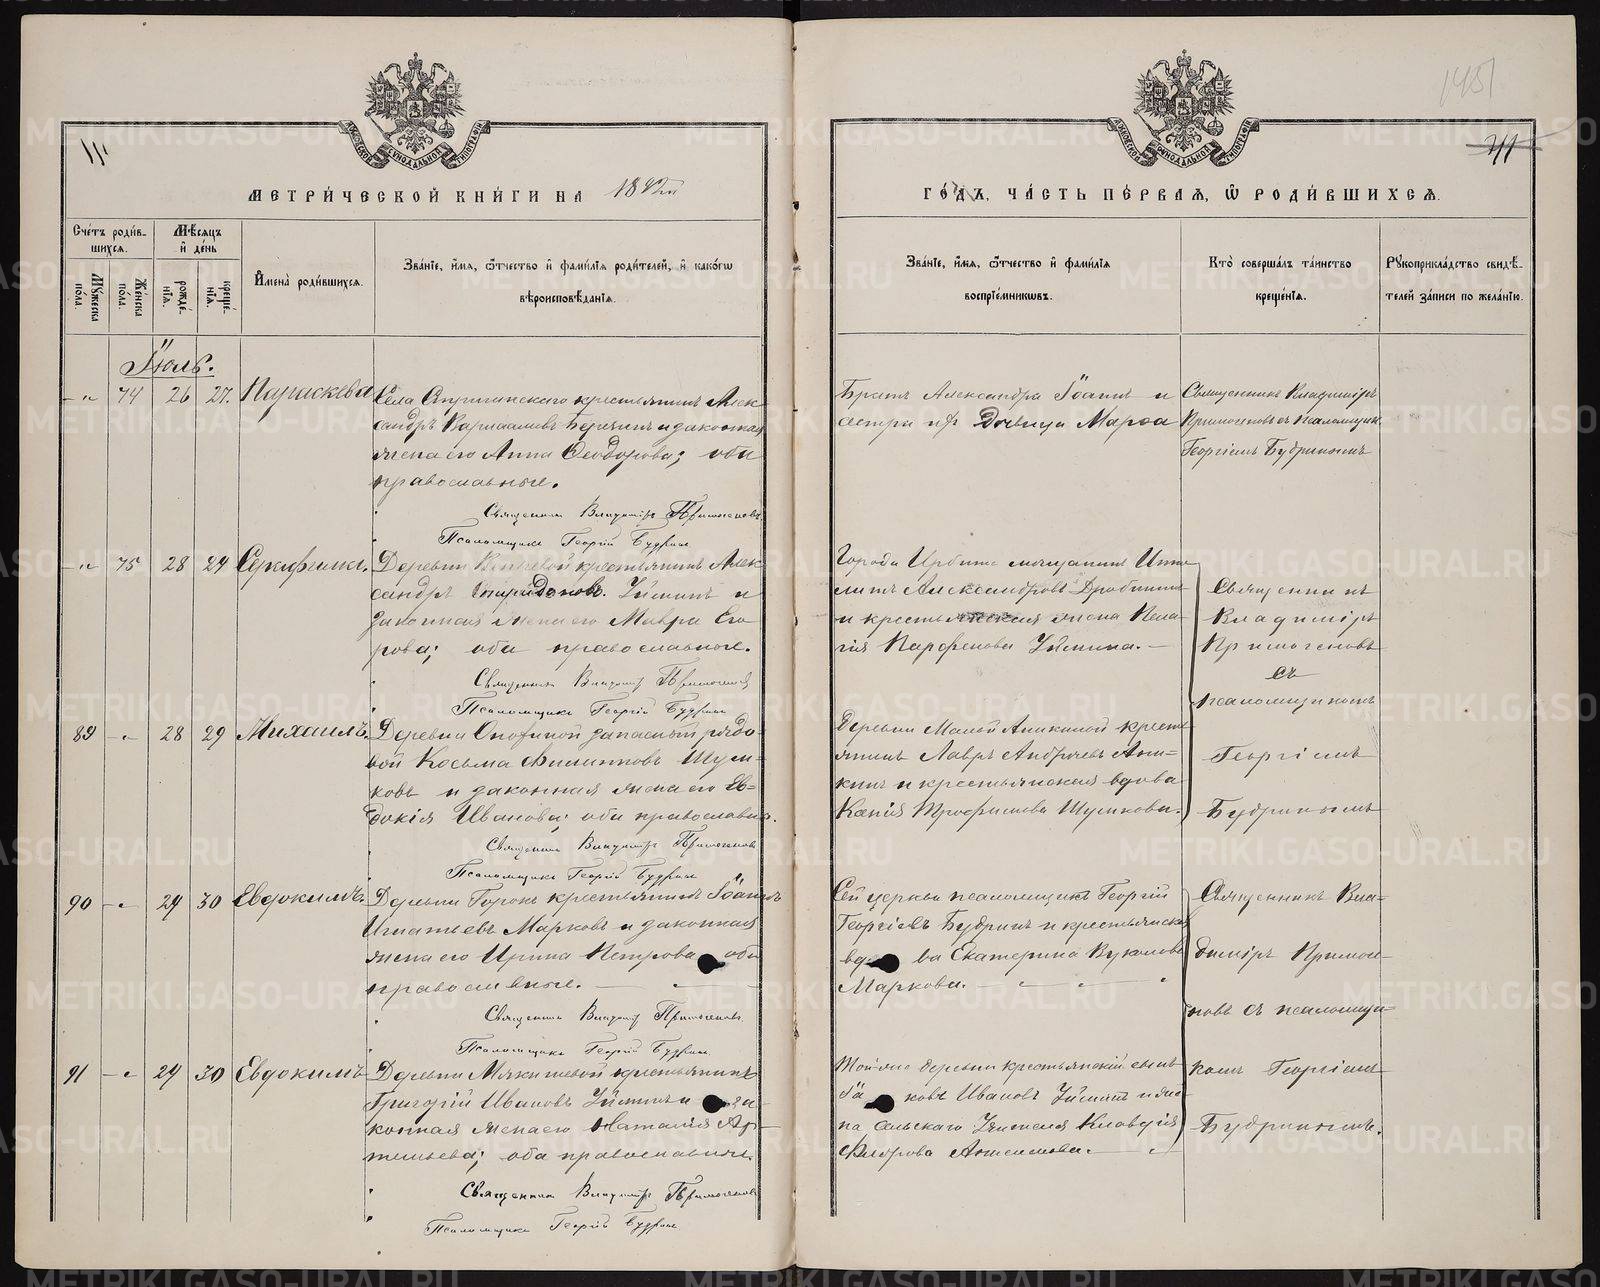 МЕТРИЧЕСКОЙ КНИГИ НА 1892й
ГОДЪ, ЧАСТЬ ПЕРВАЯ, Ѡ РОДИВШИХСЯ.
Счетъ родив-
шихся.
Мѣсяцъ
и день
Мужеска
пола.
Женска
пола.
рожде-
нія.
креще-
нія.
Имена родившихся.
Званіе, имя, ѿчество и фамилія родителей, и какогѡ
вѣроисповѣданія.
Званіе, имя, ѿчество и фамилія
воспріемникѡвъ.
Кто совершалъ таинство
крещенія.
Рукоприкладство свидѣ-
телей записи по желанію.
Іюль.
74 26 27. Параскева
Села крестьянинъ Алек-
сандръ Варлаамовъ и законная
жена его Анна Ѳеодорова; оба
православные.
Священникъ Владиміръ Примогеновъ
Псаломщикъ Георгій Будринъ
Братъ Александра Іоаннъ и
сестра ихъ Дѣвица Марѳа
Священникъ Владиміръ
Примогеновъ съ псаломщик.
Георгіемъ Будринымъ
75 28 29 Серафима.
Деревни крестьянинъ Алек-
сандръ Спиридоновъ Уйминъ и
законная жена его Мавра Его-
рова; оба православные.
Священникъ Владиміръ Примогеновъ
Псаломщикъ Георгій Будринъ
Города Ирбита мѣщанинъ Иппо-
литъ Александровъ Дробинин
и крестьянская жена Пела-
гія Парфенова Уймина.
Священникъ
Владиміръ
Примогеновъ
съ
псаломщикомъ
Георгіемъ
Будринымъ
89 28 29 Михаилъ.
Деревни запасный рядо-
вой Косьма Филипповъ Шум-
ковъ и законная жена его Ев-
докія Иванова; оба православн.
Священникъ Владиміръ Примогеновъ
Псаломщикъ Георгій Будринъ
Деревни Малой Аникиной кресть-
янинъ Лавръ Андреевъ Ани-
кинъ и крестьянская вдова
Ксенія Трофимова Шумкова.
90 29 30 Евдокимъ.
Деревни крестьянинъ Іоаннъ
Игнатьевъ Марковъ и законная
жена его Ирина Петрова оба
православные.
Священникъ Владиміръ Примогеновъ
Псаломщикъ Георгій Будринъ
Сей церкви псаломщикъ Георгій
Георгіевъ Будринъ и крестьянская
вдова Екатерина Вуколова
Маркова.
Священникъ Вла-
диміръ Примоге-
новъ съ псаломщи-
комъ Георгіем
Будринымъ.
91 29 30 Евдокимъ
Деревни Мякишевой крестьянинъ
Григорій Ивановъ Уйминъ и за-
конная жена его Наталія Ар-
темьева; оба православные.
Священникъ Владиміръ Примогеновъ
Псаломщикъ Георгій Будринъ
Той-же деревни крестьянскій сынъ
Іаковъ Ивановъ Уйминъ и же-
на сельскаго Учителя Клавдія
Ѳедорова